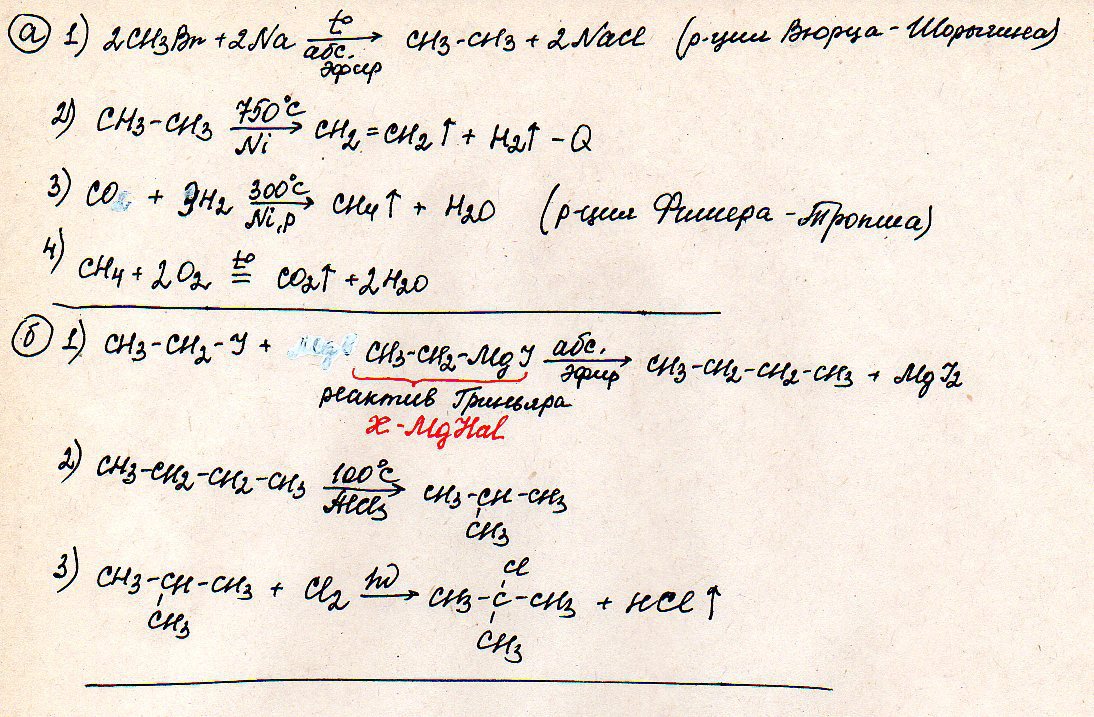 а 1) 2CH3Br + 2Na t° абс. эфир → CH3-CH3 + 2NaCl (р-ция Вюрца-Шорыгина)
2) CH3-CH3 750°C Ni → CH2=CH2↑ + H2↑ - Q
3) CO + 3H2 300°C Ni,p → CH4↑ + H2O (р-ция Фишера-Тропша)
4) CH4 + 2O2 t° = CO2↑ + 2H2O
б 1) CH3-CH2-J + CH3-CH2-MgJ абс. эфир → CH3-CH2-CH2-CH3 + MgJ2
реактив Гриньяра
X-MgHal
2) CH3-CH2-CH2-CH3 100°C AlCl3 → CH3-CH-CH3
CH3
Cl
3) CH3-CH-CH3 + Cl2 hν → CH3-C-CH3 + HCl↑
CH3 CH3